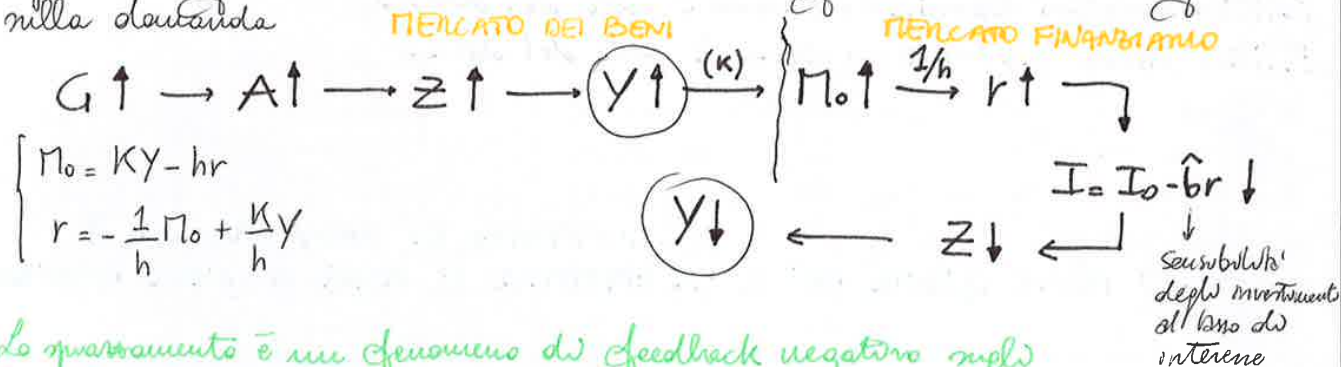 sulla domanda
MERCATO DEI BENI
MERCATO FINANZIARIO
G↑ → A↑ → Z↑ → Y↑ (K) → M₀↑ 1/h → r↑
M₀ = KY - hr
I = I₀ - b̂r ↓
r = - 1/h M₀ + K/h Y
Y↓ ← Z↓ ←
sensibilità
degli investimenti
al tasso di
interesse
Lo spiazzamento è un fenomeno di feedback negativo sugli